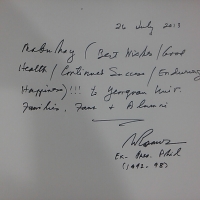 26 July 2013
Mabuhay (Best Wishes/Good
Health/Continued Success/Enduring
Happiness)!!! to Yeungnam Univ.
Families, Fans & Alumni
Ex. Pres. Phil
(1992-98)